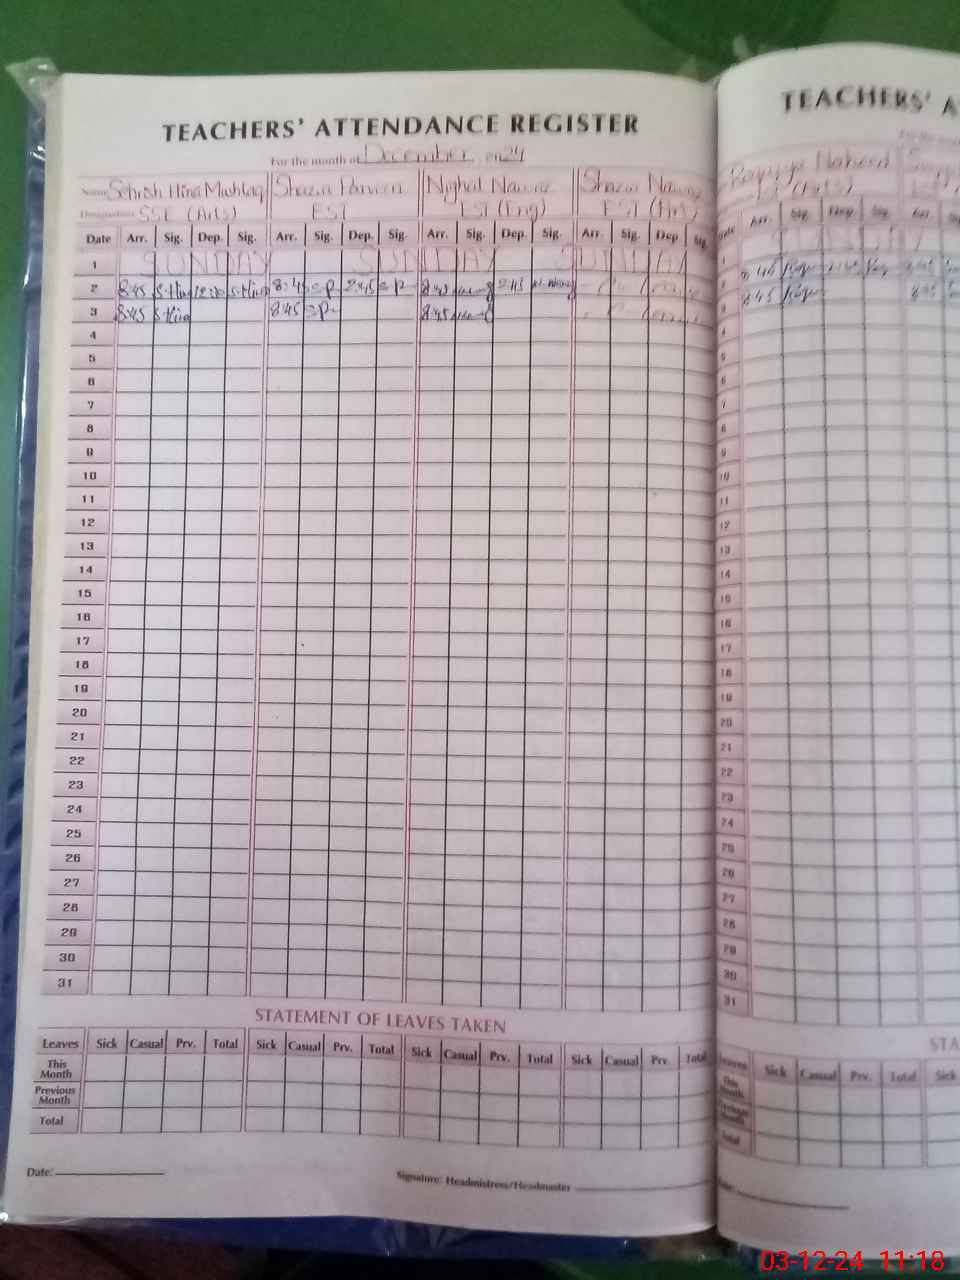 TEACHERS' ATTENDANCE REGISTER
For the month of December 2024
Name Sehrish Hina Mushtaq Shazia Parveen Nighat Nawaz Shazia Nawaz
Designation SSE (Arts) EST EST (Eng) EST
Date Arr. Sig. Dep. Sig. Arr. Sig. Dep. Sig. Arr. Sig. Dep. Sig. Arr. Sig. Dep Sig.
1 SUNDAY SUNDAY SUNDAY
2 8:45 S.Hina S.Hina 8:45 S.P 2:45 S.P 8:45 2:45
3 8:45 S.Hina 8:45 S.P 8:45
4
5
6
7
8
9
10
11
12
13
14
15
16
17
18
19
20
21
22
23
24
25
26
27
28
29
30
31
STATEMENT OF LEAVES TAKEN
Leaves Sick Casual Prv. Total Sick Casual Prv. Total Sick Casual Prv. Total Sick Casual Prv. Total
This
Month
Previous
Month
Total
Date:
Signature: Headmistress/Headmaster
TEACHERS' A
For the mon
Naheed
(Arts)
Date Arr. Sig. Dep. Sig. Arr.
1
2 8:45
3 8:45
4
5
6
7
8
9
10
11
12
13
14
15
16
17
18
19
20
21
22
23
24
25
26
27
28
29
30
31
STA
Leaves Sick Casual Prv. Total Sick
This
Month
Previous
Month
Total
Date:
03-12-24 11:18